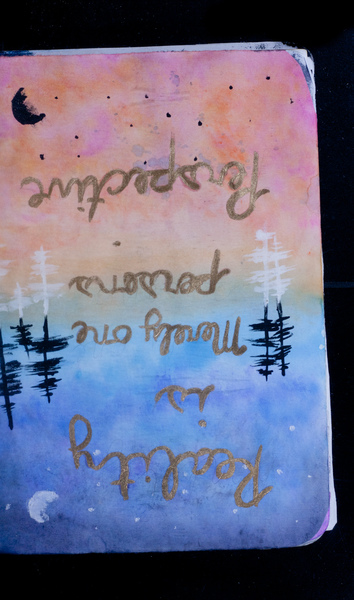 Reality
is
Merely one
person's
Perspective